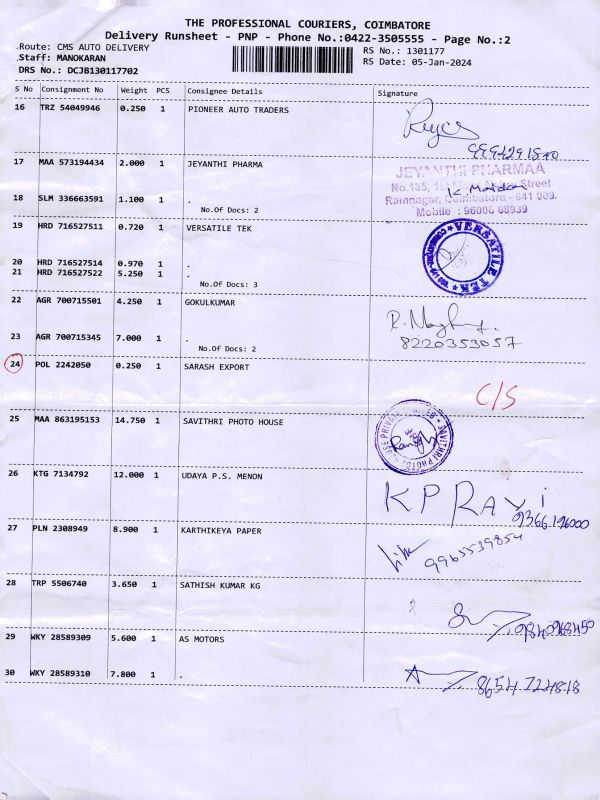 THE PROFESSIONAL COURIERS, COIMBATORE
Delivery Runsheet - PNP - Phone No.:0422-3505555 - Page No.:2
Route: CMS AUTO DELIVERY RS No.: 1301177
Staff: MANOKARAN RS Date: 05-Jan-2024
DRS No.: DCJB130117702
S No Consignment No Weight PCS Consignee Details Signature
16 TRZ 54049946 0.250 1 PIONEER AUTO TRADERS
17 MAA 573194434 2.000 1 JEYANTHI PHARMA
JEYANTHI PHARMAA
Street
Ramnagar, Coimbatore - 641 009.
Mobile : 96006 68939
18 SLM 336663591 1.100 1 .
No.Of Docs: 2
19 HRD 716527511 0.720 1 VERSATILE TEK
VERSATILE TEK
20 HRD 716527514 0.970 1 .
21 HRD 716527522 5.250 1 .
No.Of Docs: 3
22 AGR 700715501 4.250 1 GOKULKUMAR
8220353057
23 AGR 700715345 7.000 1 .
No.Of Docs: 2
24 POL 2242050 0.250 1 SARASH EXPORT
C/S
25 MAA 863195153 14.750 1 SAVITHRI PHOTO HOUSE
SAVITHRI PHOTO HOUSE PRIVATE LIMITED
26 KTG 7134792 12.000 1 UDAYA P.S. MENON
K P RAVI
9366196000
27 PLN 2308949 8.900 1 KARTHIKEYA PAPER
9965539854
28 TRP 5506740 3.650 1 SATHISH KUMAR KG
29 WKY 28589309 5.600 1 AS MOTORS
30 WKY 28589310 7.800 1 .